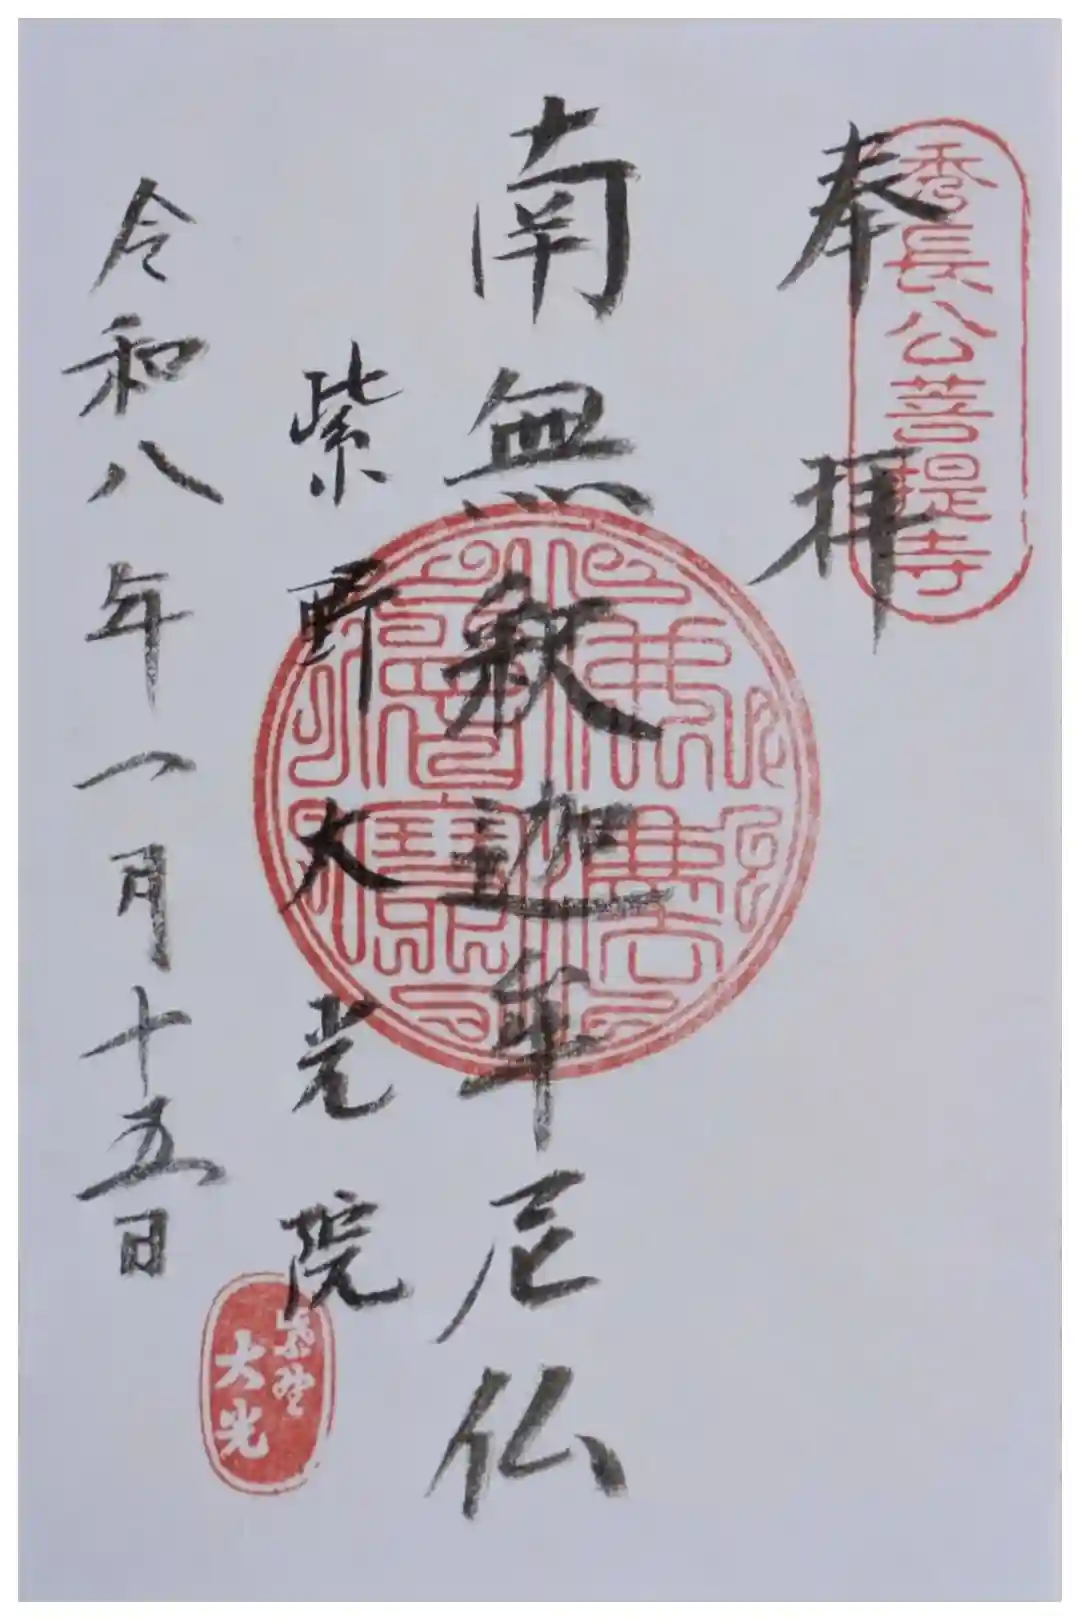 奉拝
秀長公菩提寺
南無釈迦牟尼仏
紫野大光院
令和八年一月十五日
紫野
大光